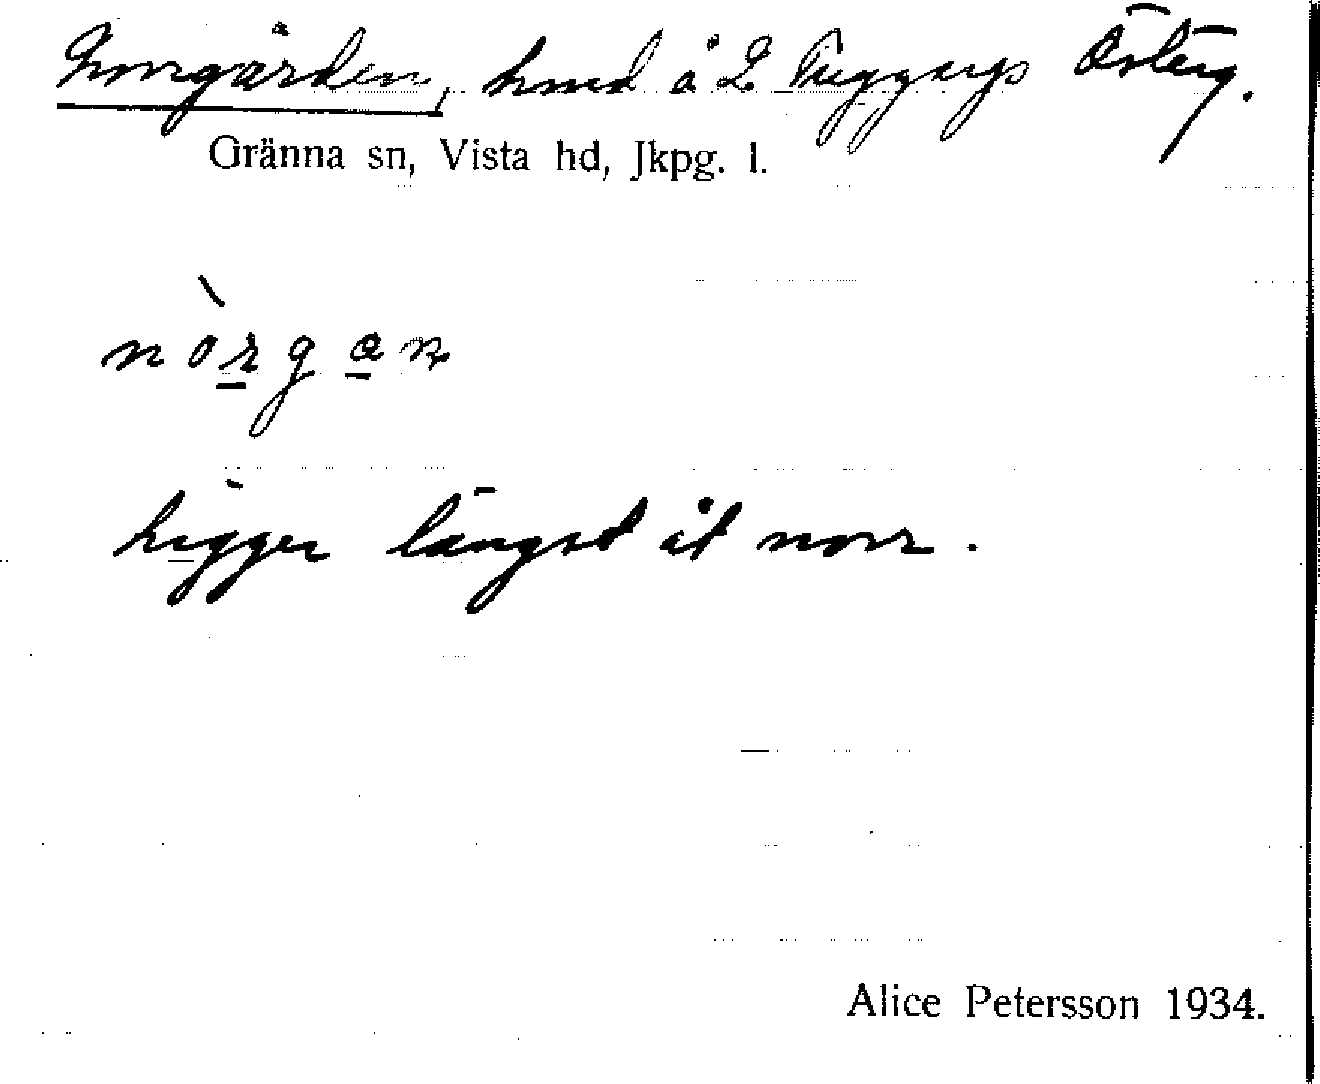 Norrgården, hmd å L Tuggarp Österg.
Gränna sn, Vista hd, Jkpg. l.
nòrgan
Ligger längst åt norr.
Alice Petersson 1934.